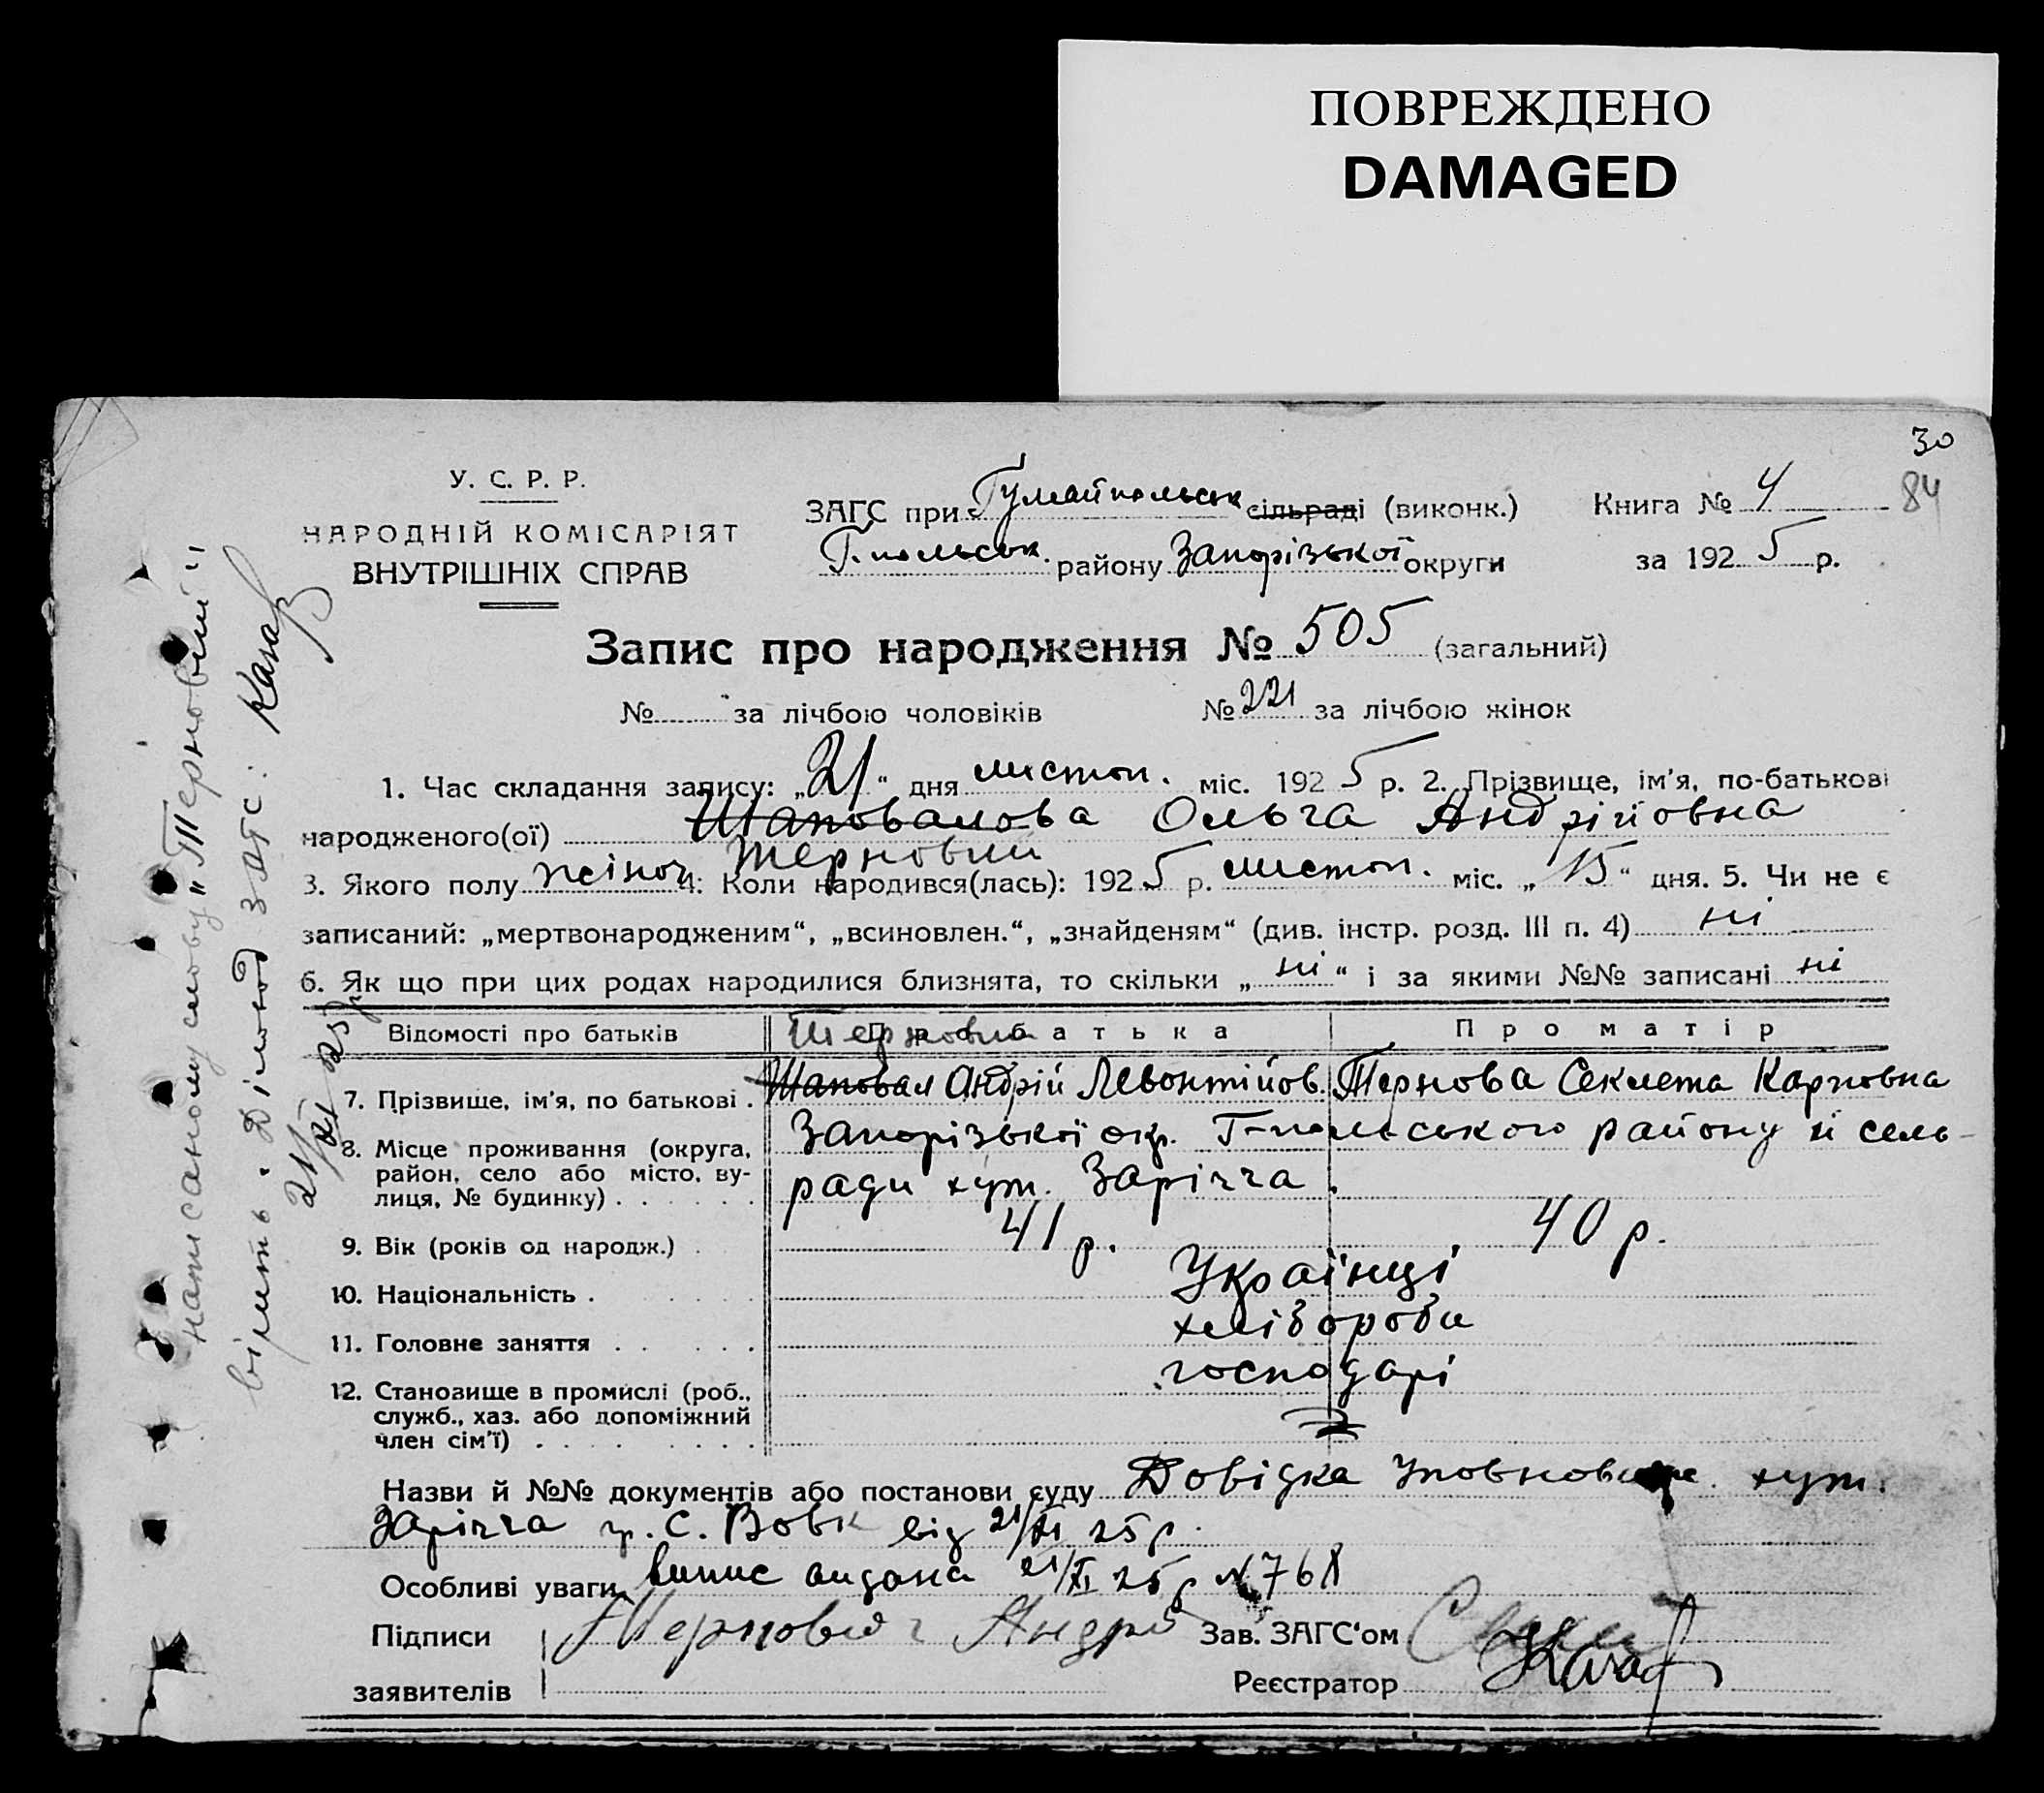 ПОВРЕЖДЕНО
DAMAGED
30
84
У. С. Р. Р.
НАРОДНІЙ КОМІСАРІЯТ
ВНУТРІШНІХ СПРАВ
ЗАГС при Гуляйпольськ сільраді (виконк.)
Г.польськ. району Запорізької округи
Книга № 4
за 1925 р.
Запис про народження № 505 (загальний)
№ за лічбою чоловіків № 221 за лічбою жінок
1. Час складання запису: „21“ дня листоп. міс. 1925 р. 2. Прізвище, ім'я, по-батькові
народженого(ої) Шаповалова Ольга Андрійовна
Терновий
3. Якого полу жіноч 4: Коли народився(лась): 1925 р. листоп. міс. „15“ дня. 5. Чи не є
записаний: „мертвонародженим“, „всиновлен.“, „знайденям“ (див. інстр. розд. III п. 4) ні
6. Як що при цих родах народилися близнята, то скільки „ні“ і за якими №№ записані ні
Відомості про батьків Про батька Про матір
7. Прізвище, ім'я, по батькові . Шаповал Андрій Левонтійов. Тернова Секлета Карповна
8. Місце проживання (округа, район, село або місто, вулиця, № будинку) Запорізької окр. Г-польського району й сель-
ради хут. Заріччя.
9. Вік (років од народж.) 41 р. 40 р.
10. Національність . Українці
11. Головне заняття хлібороби
12. Становище в промислі (роб., служб., хаз. або допоміжний член сім'ї) господарі
Назви й №№ документів або постанови суду Довідка хут.
Заріччя гр. С. Вовк від 21/XI 25 р.
Особливі уваги випис видана 21/XI 25 р № 768
Підписи
заявителів
Андрі
Зав. ЗАГС'ом
Реєстратор
написаному слову „Терновий"
вірить. Діловод загс:
21/XI 25 р.